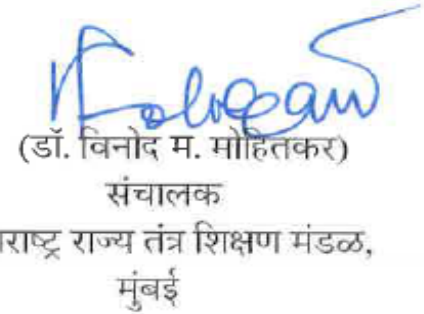 (डॉ. विनोद म. मोहितकर)
संचालक
राष्ट्र राज्य तंत्र शिक्षण मंडळ,
मुंबई